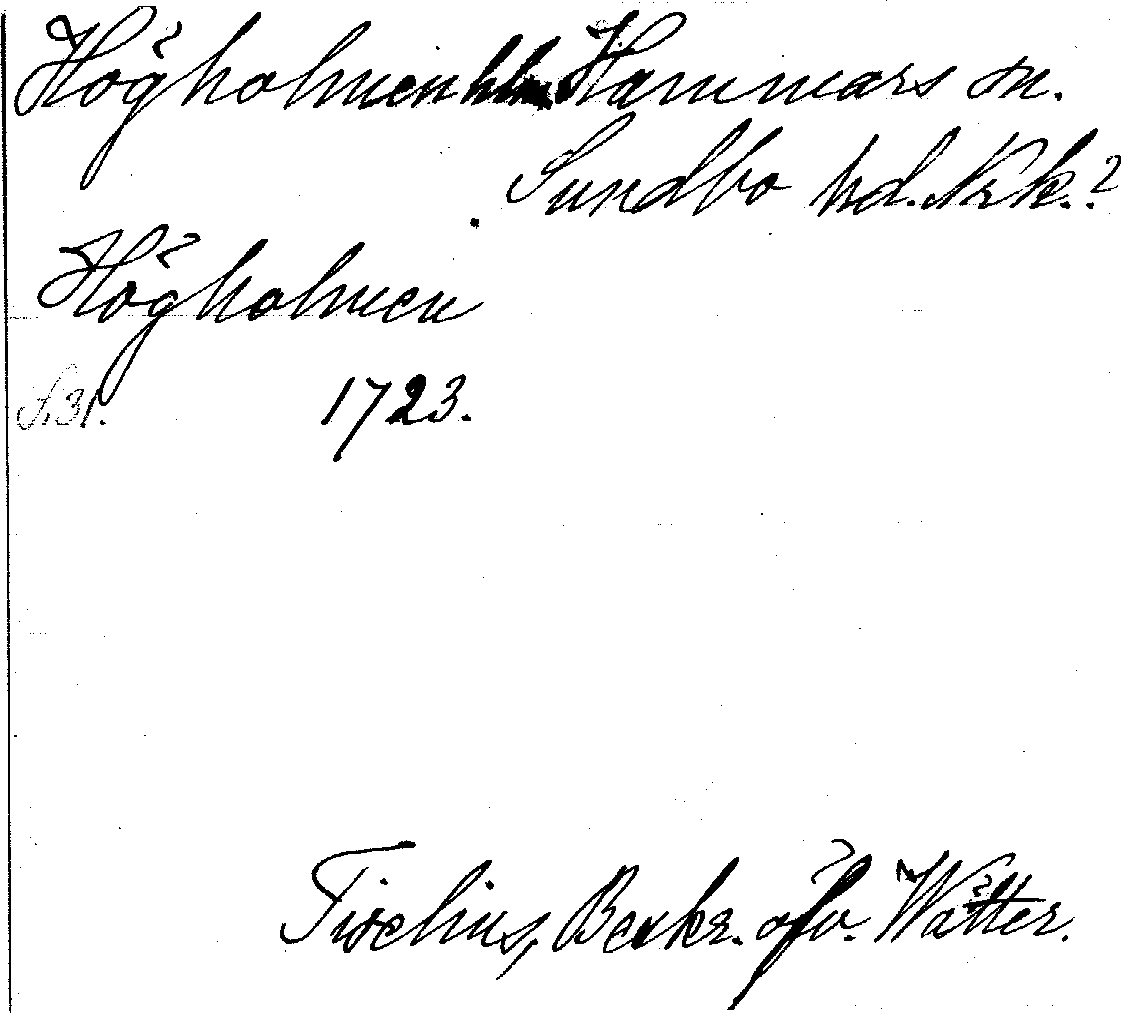 Högholmen hlm Hammars sn.
Sundbo hd. Nrk.?
Högholmen
S. 31. 1723.
Tiselius, Beskr. öfv. Wätter.